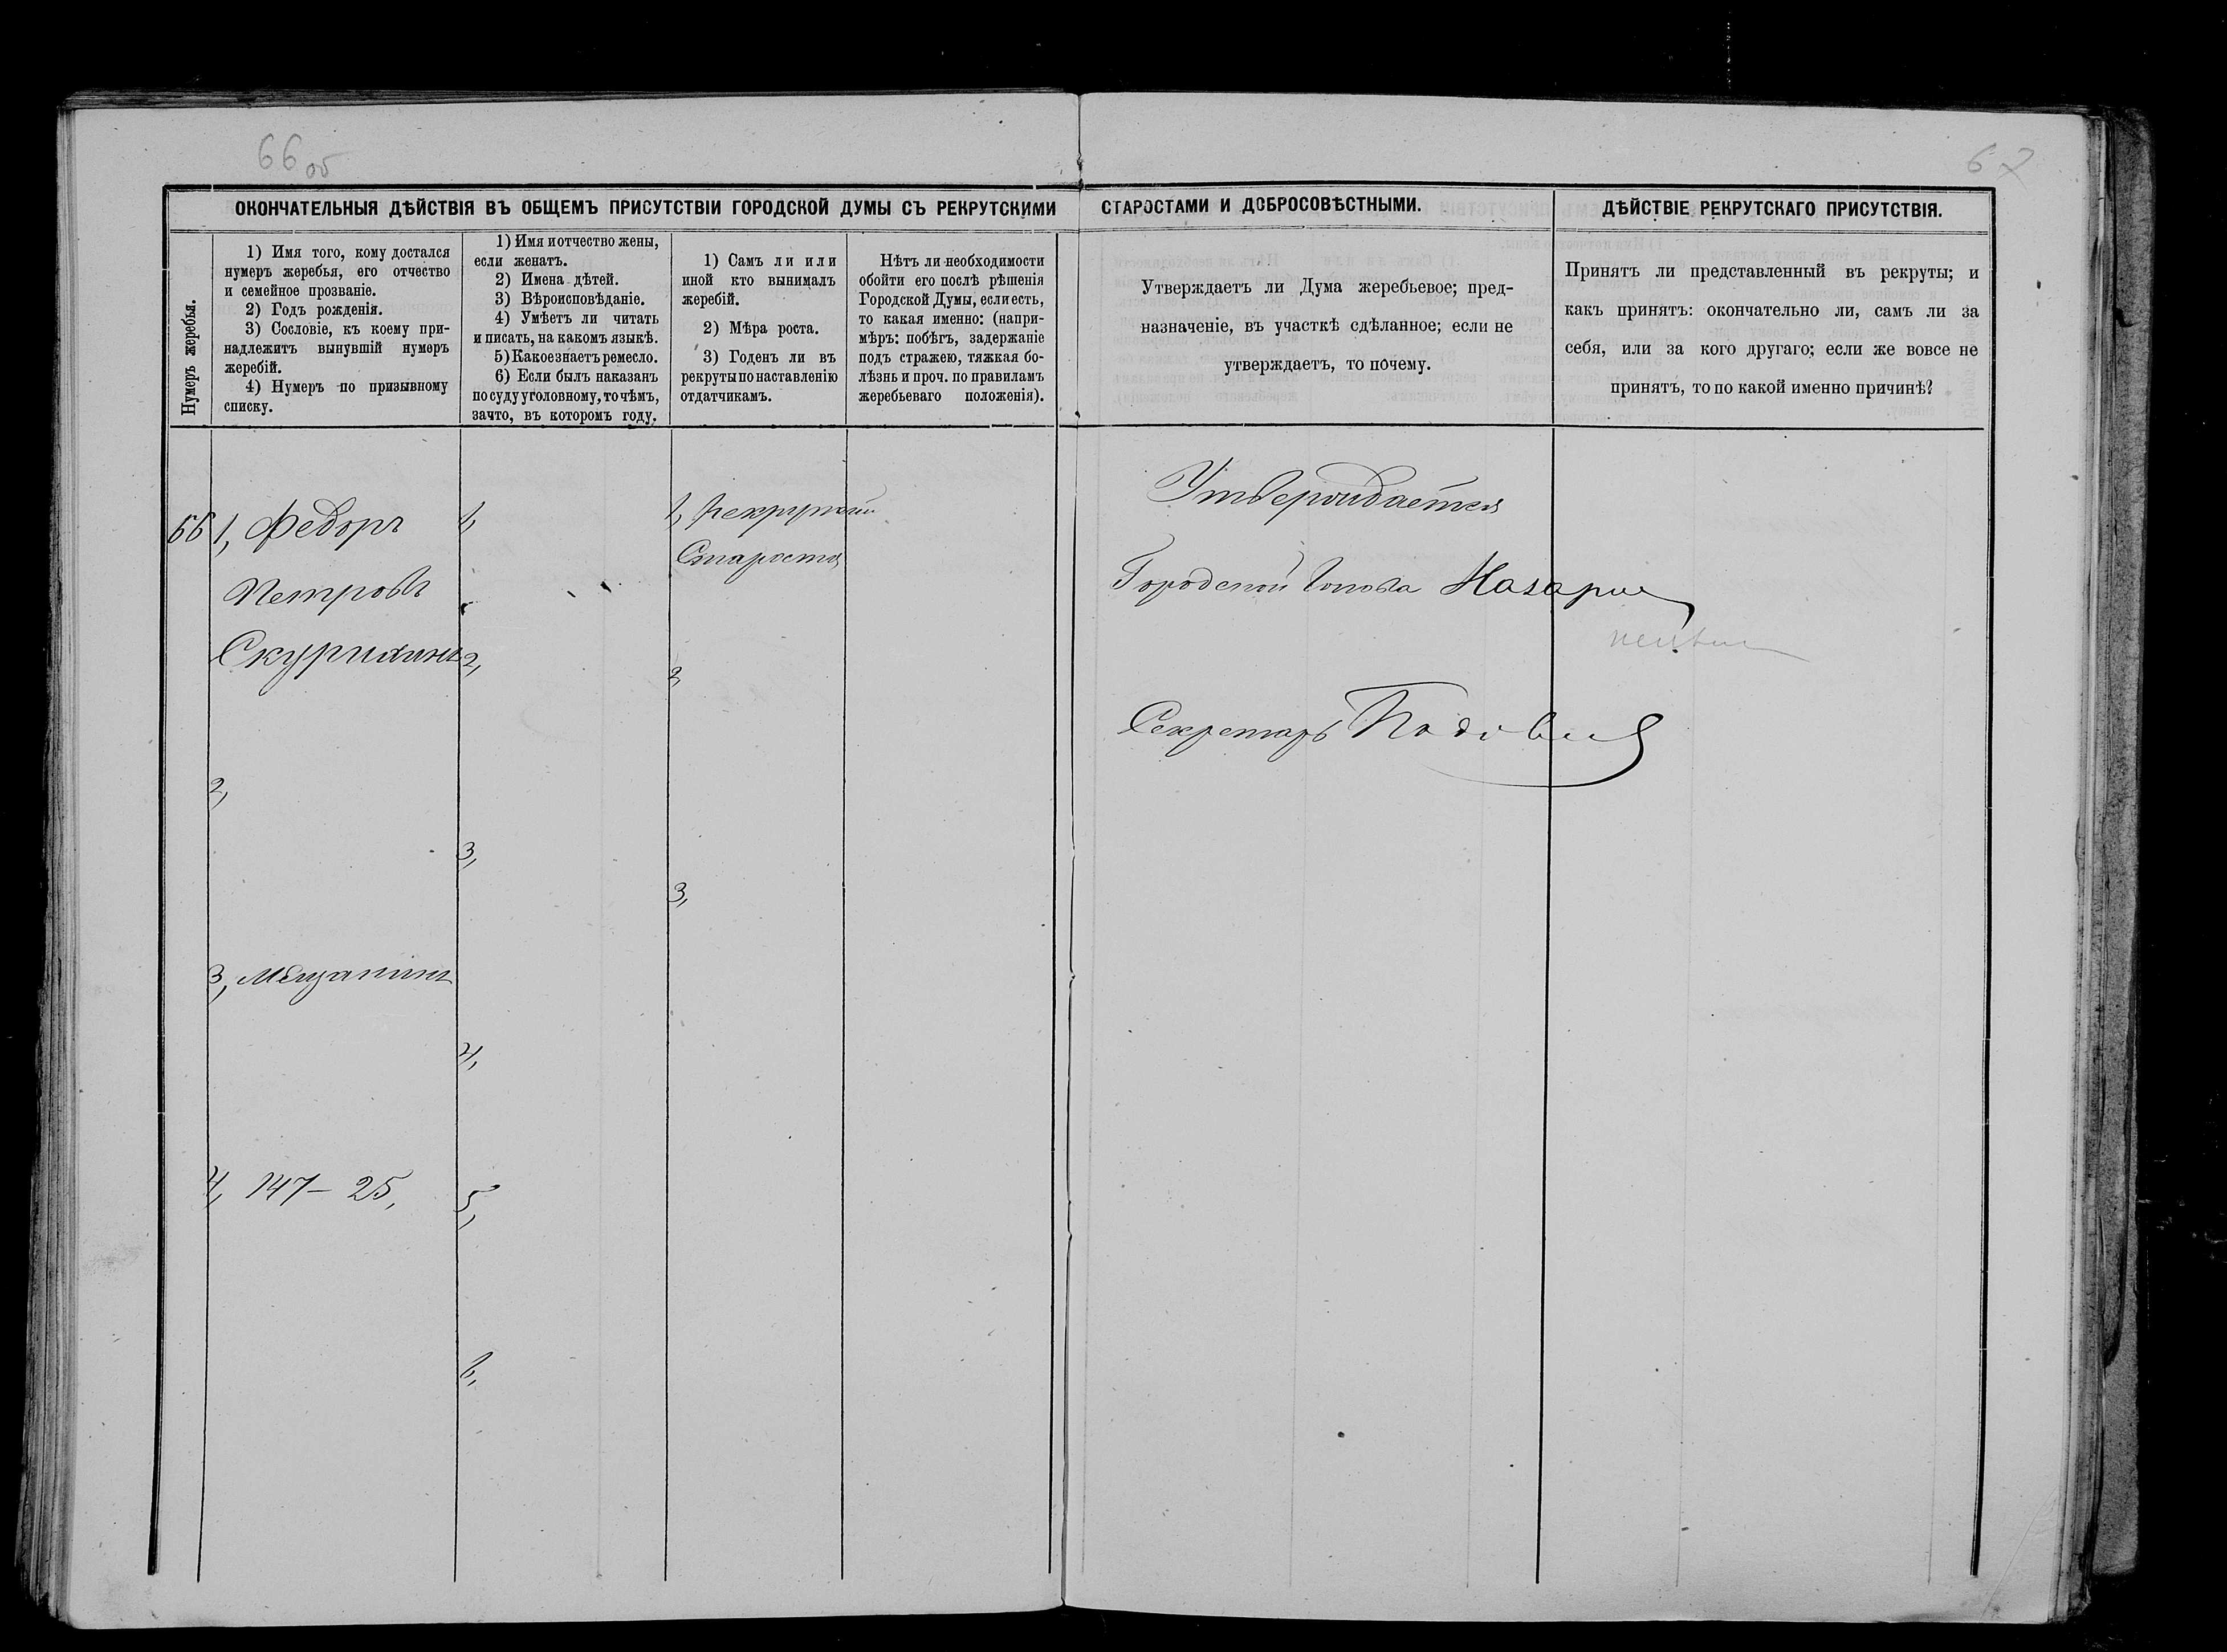 66 об
67
ОКОНЧАТЕЛЬНЫЯ ДѢЙСТВІЯ ВЪ ОБЩЕМЪ ПРИСУТСТВІИ ГОРОДСКОЙ ДУМЫ СЪ РЕКРУТСКИМИ СТАРОСТАМИ И ДОБРОСОВѢСТНЫМИ.
ДѢЙСТВІЕ РЕКРУТСКАГО ПРИСУТСТВІЯ.
Нумеръ жеребья.
1) Имя того, кому достался
нумеръ жеребья, его отчество
и семейное прозваніе.
2) Годъ рожденія.
3) Сословіе, къ коему при-
надлежитъ вынувшій нумеръ
жеребій.
4) Нумеръ по призывному
списку.
1) Имя и отчество жены,
если женатъ.
2) Имена дѣтей.
3) Вѣроисповѣданіе.
4) Умѣетъ ли читать
и писать, на какомъ языкѣ.
5) Какое знаетъ ремесло.
6) Если былъ наказанъ
по суду уголовному, то чѣмъ,
за что, въ которомъ году.
1) Самъ ли или
иной кто вынималъ
жеребій.
2) Мѣра роста.
3) Годенъ ли въ
рекруты по наставленію
отдатчикамъ.
Нѣтъ ли необходимости
обойти его послѣ рѣшенія
Городской Думы, если есть,
то какая именно: (напри-
мѣръ: побѣгъ, задержаніе
подъ стражею, тяжкая бо-
лѣзнь и проч. по правиламъ
жеребьеваго положенія).
Утверждаетъ ли Дума жеребьевое; пред-
назначеніе, въ участкѣ сдѣланное; если не
утверждаетъ, то почему.
Принятъ ли представленный въ рекруты; и
какъ принятъ: окончательно ли, самъ ли за
себя, или за кого другаго; если же вовсе не
принятъ, то по какой именно причинѣ?
66
1, Федоръ
Петровъ
Скурихинъ
2,
3, Мѣщанинъ
4, 147 – 25,
1,
2,
3,
4,
5,
6,
1, Рекрутскій
Староста
2,
3,
Утверждается
Городской Голова
Секретарь